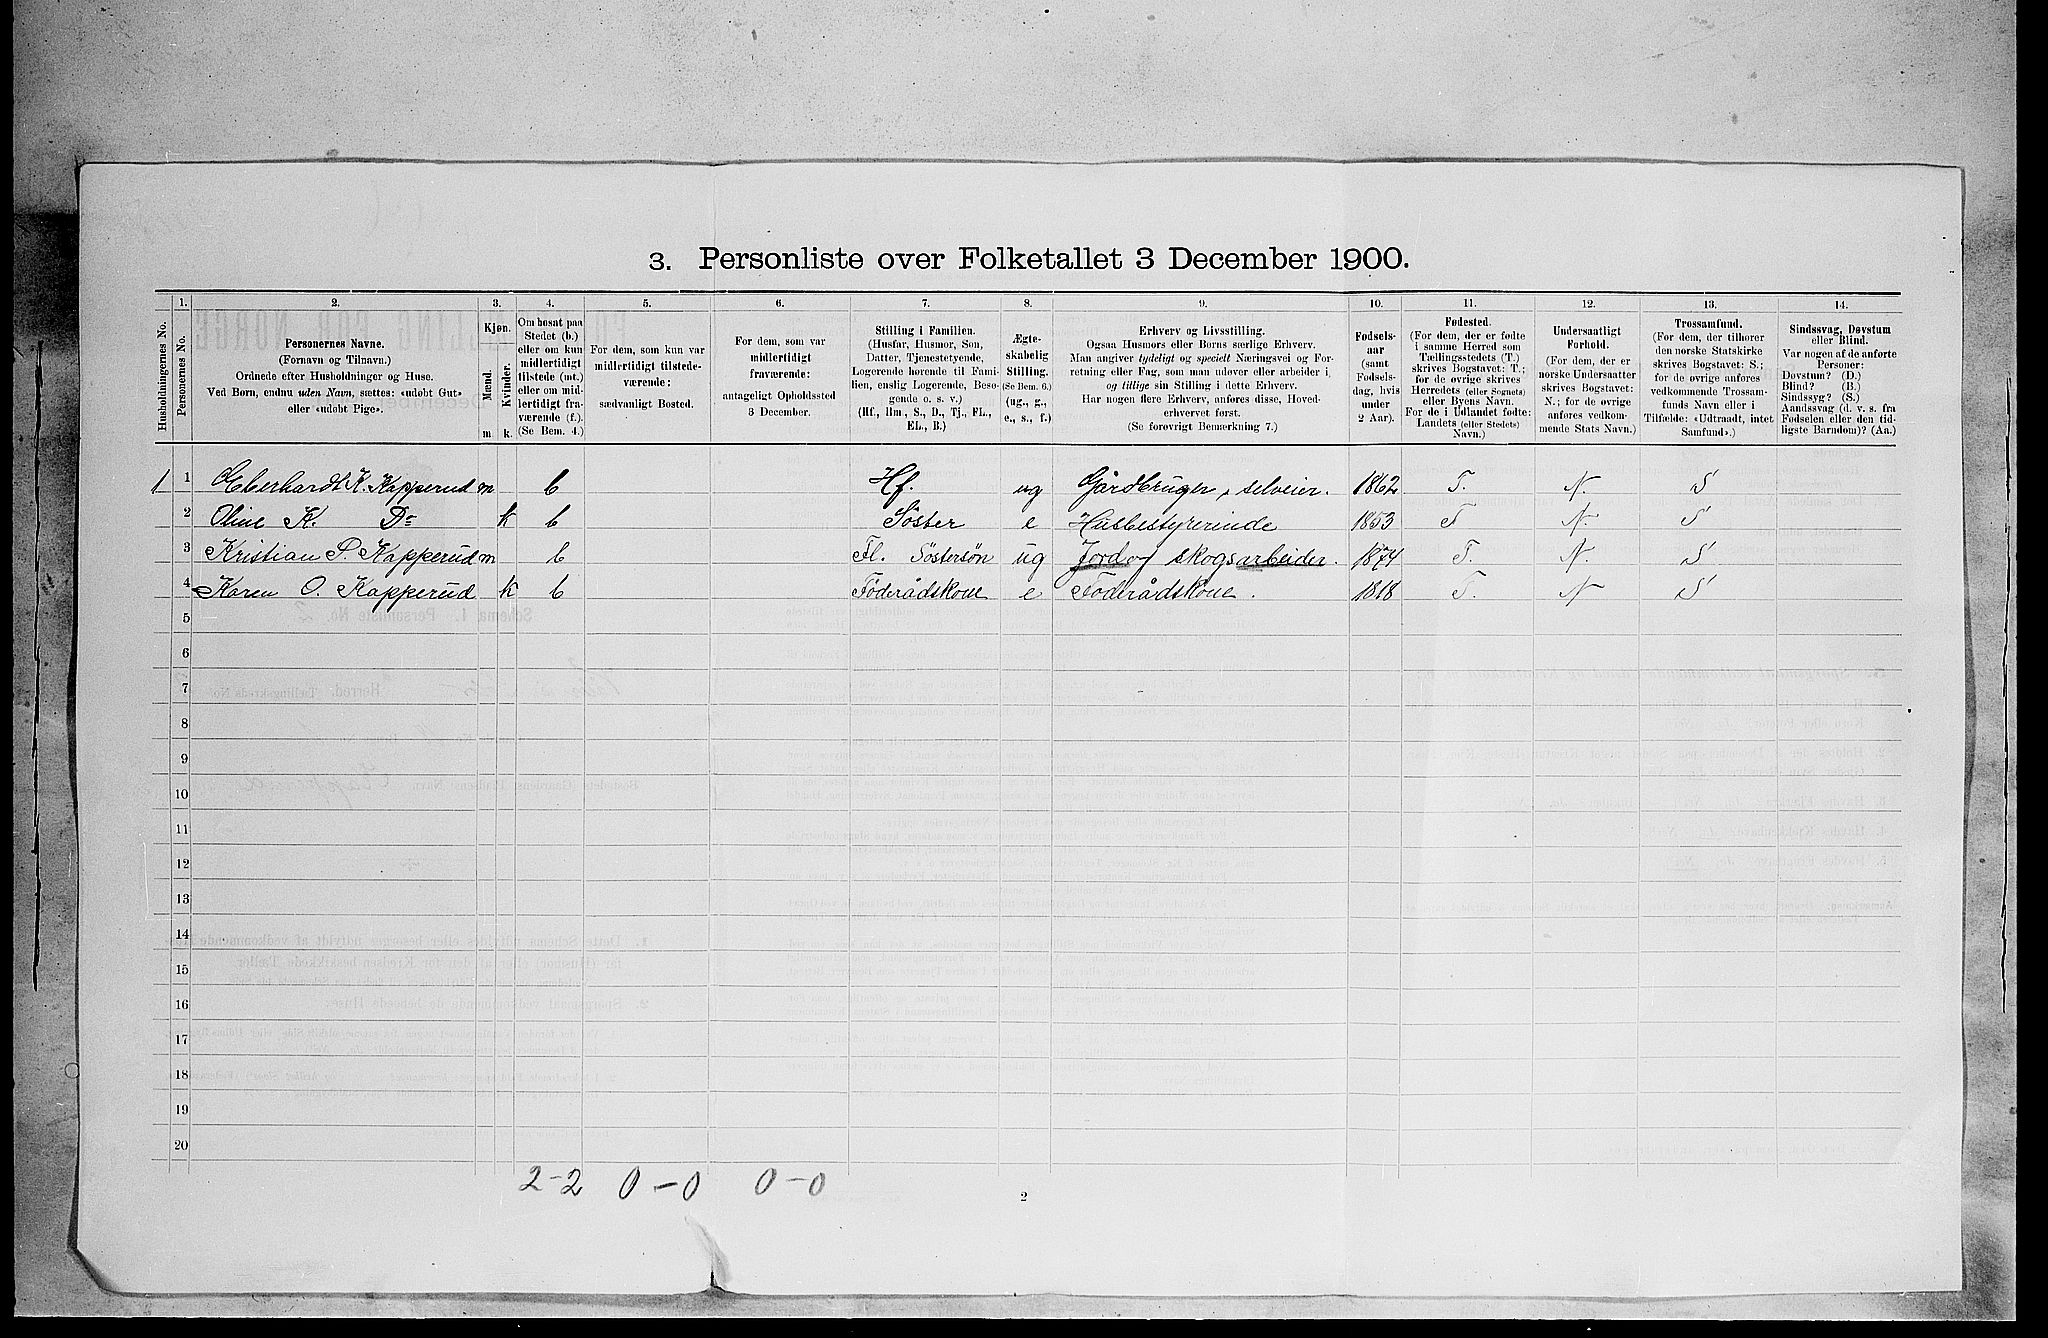 3. Personliste over Folketallet 3 December 1900.
Husholdningernes No.
1. Personernes No.
2. Personernes Navne.
(Fornavn og Tilnavn.)
Ordnede efter Husholdninger og Huse.
Ved Børn, endnu uden Navn, sættes: «udøbt Gut»
eller «udøbt Pige».
3. Kjøn.
Mænd. m
Kvinder. k.
4. Om bosat paa
Stedet (b.)
eller om kun
midlertidigt
tilstede (mt.)
eller om mid-
lertidigt fra-
værende (f.).
(Se Bem. 4.)
5. For dem, som kun var
midlertidigt tilstede-
værende:
sædvanligt Bosted.
6. For dem, som var
midlertidigt
fraværende:
antageligt Opholdssted
3 December.
7. Stilling i Familien.
(Husfar, Husmor, Søn,
Datter, Tjenestetyende,
Logerende hørende til Fami-
lien, enslig Logerende, Besø-
gende o. s. v.)
(Hf., Hm., S., D., Tj., FL.,
EL., B.)
8. Ægte-
skabelig
Stilling.
(Se Bem. 6.)
(ug., g.,
e., s., f.)
9. Erhverv og Livsstilling.
Ogsaa Husmors eller Børns særlige Erhverv.
Man angiver tydeligt og specielt Næringsvei og For-
retning eller Fag, som man udøver eller arbeider i,
og tillige sin Stilling i dette Erhverv.
Har nogen flere Erhverv, anføres disse, Hoved-
erhvervet først.
(Se forøvrigt Bemærkning 7.)
10. Fødsels-
aar
(samt
Fødsels-
dag, hvis
under
2 Aar).
11. Fødested.
(For dem, der er fødte
i samme Herred som
Tællingsstedets (T.)
skrives Bogstavet: T.;
for de øvrige skrives
Herredets (eller Sognets)
eller Byens Navn.
For de i Udlandet fødte:
Landets (eller Stedets)
Navn.)
12. Undersaatligt
Forhold.
(For dem, der er
norske Undersaatter
skrives Bogstavet:
N.; for de øvrige
anføres vedkom-
mende Stats Navn.)
13. Trossamfund.
(For dem, der tilhører
den norske Statskirke
skrives Bogstavet: S.;
for de øvrige anføres
vedkommende Trossam-
funds Navn eller i
Tilfælde: «Udtraadt, intet
Samfund».)
14. Sindssvag, Døvstum
eller Blind.
Var nogen af de anførte
Personer:
Døvstum? (D.)
Blind? (B.)
Sindssyg? (S.)
Aandssvag (d. v. s. fra
Fødselen eller den tid-
ligste Barndom)? (Aa.)
1 1 Eberhardt K. Kapperud m b Hf. ug Gårdbruger, selveier. 1862 T. N. S
2 Oline K. Do k b Söster e Husbestyrerinde 1853 T N. S
3 Kristian P. Kapperud m b Fl. Söstersön ug Jord og skogsarbeider. 1874 T. N. S
4 Karen O. Kapperud k b Föderådskone e Föderådskone. 1818 T. N S
5
6
7
8
9
10
11
12
13
14
15
16
17
18
19
20
2-2 0-0 0-0
2